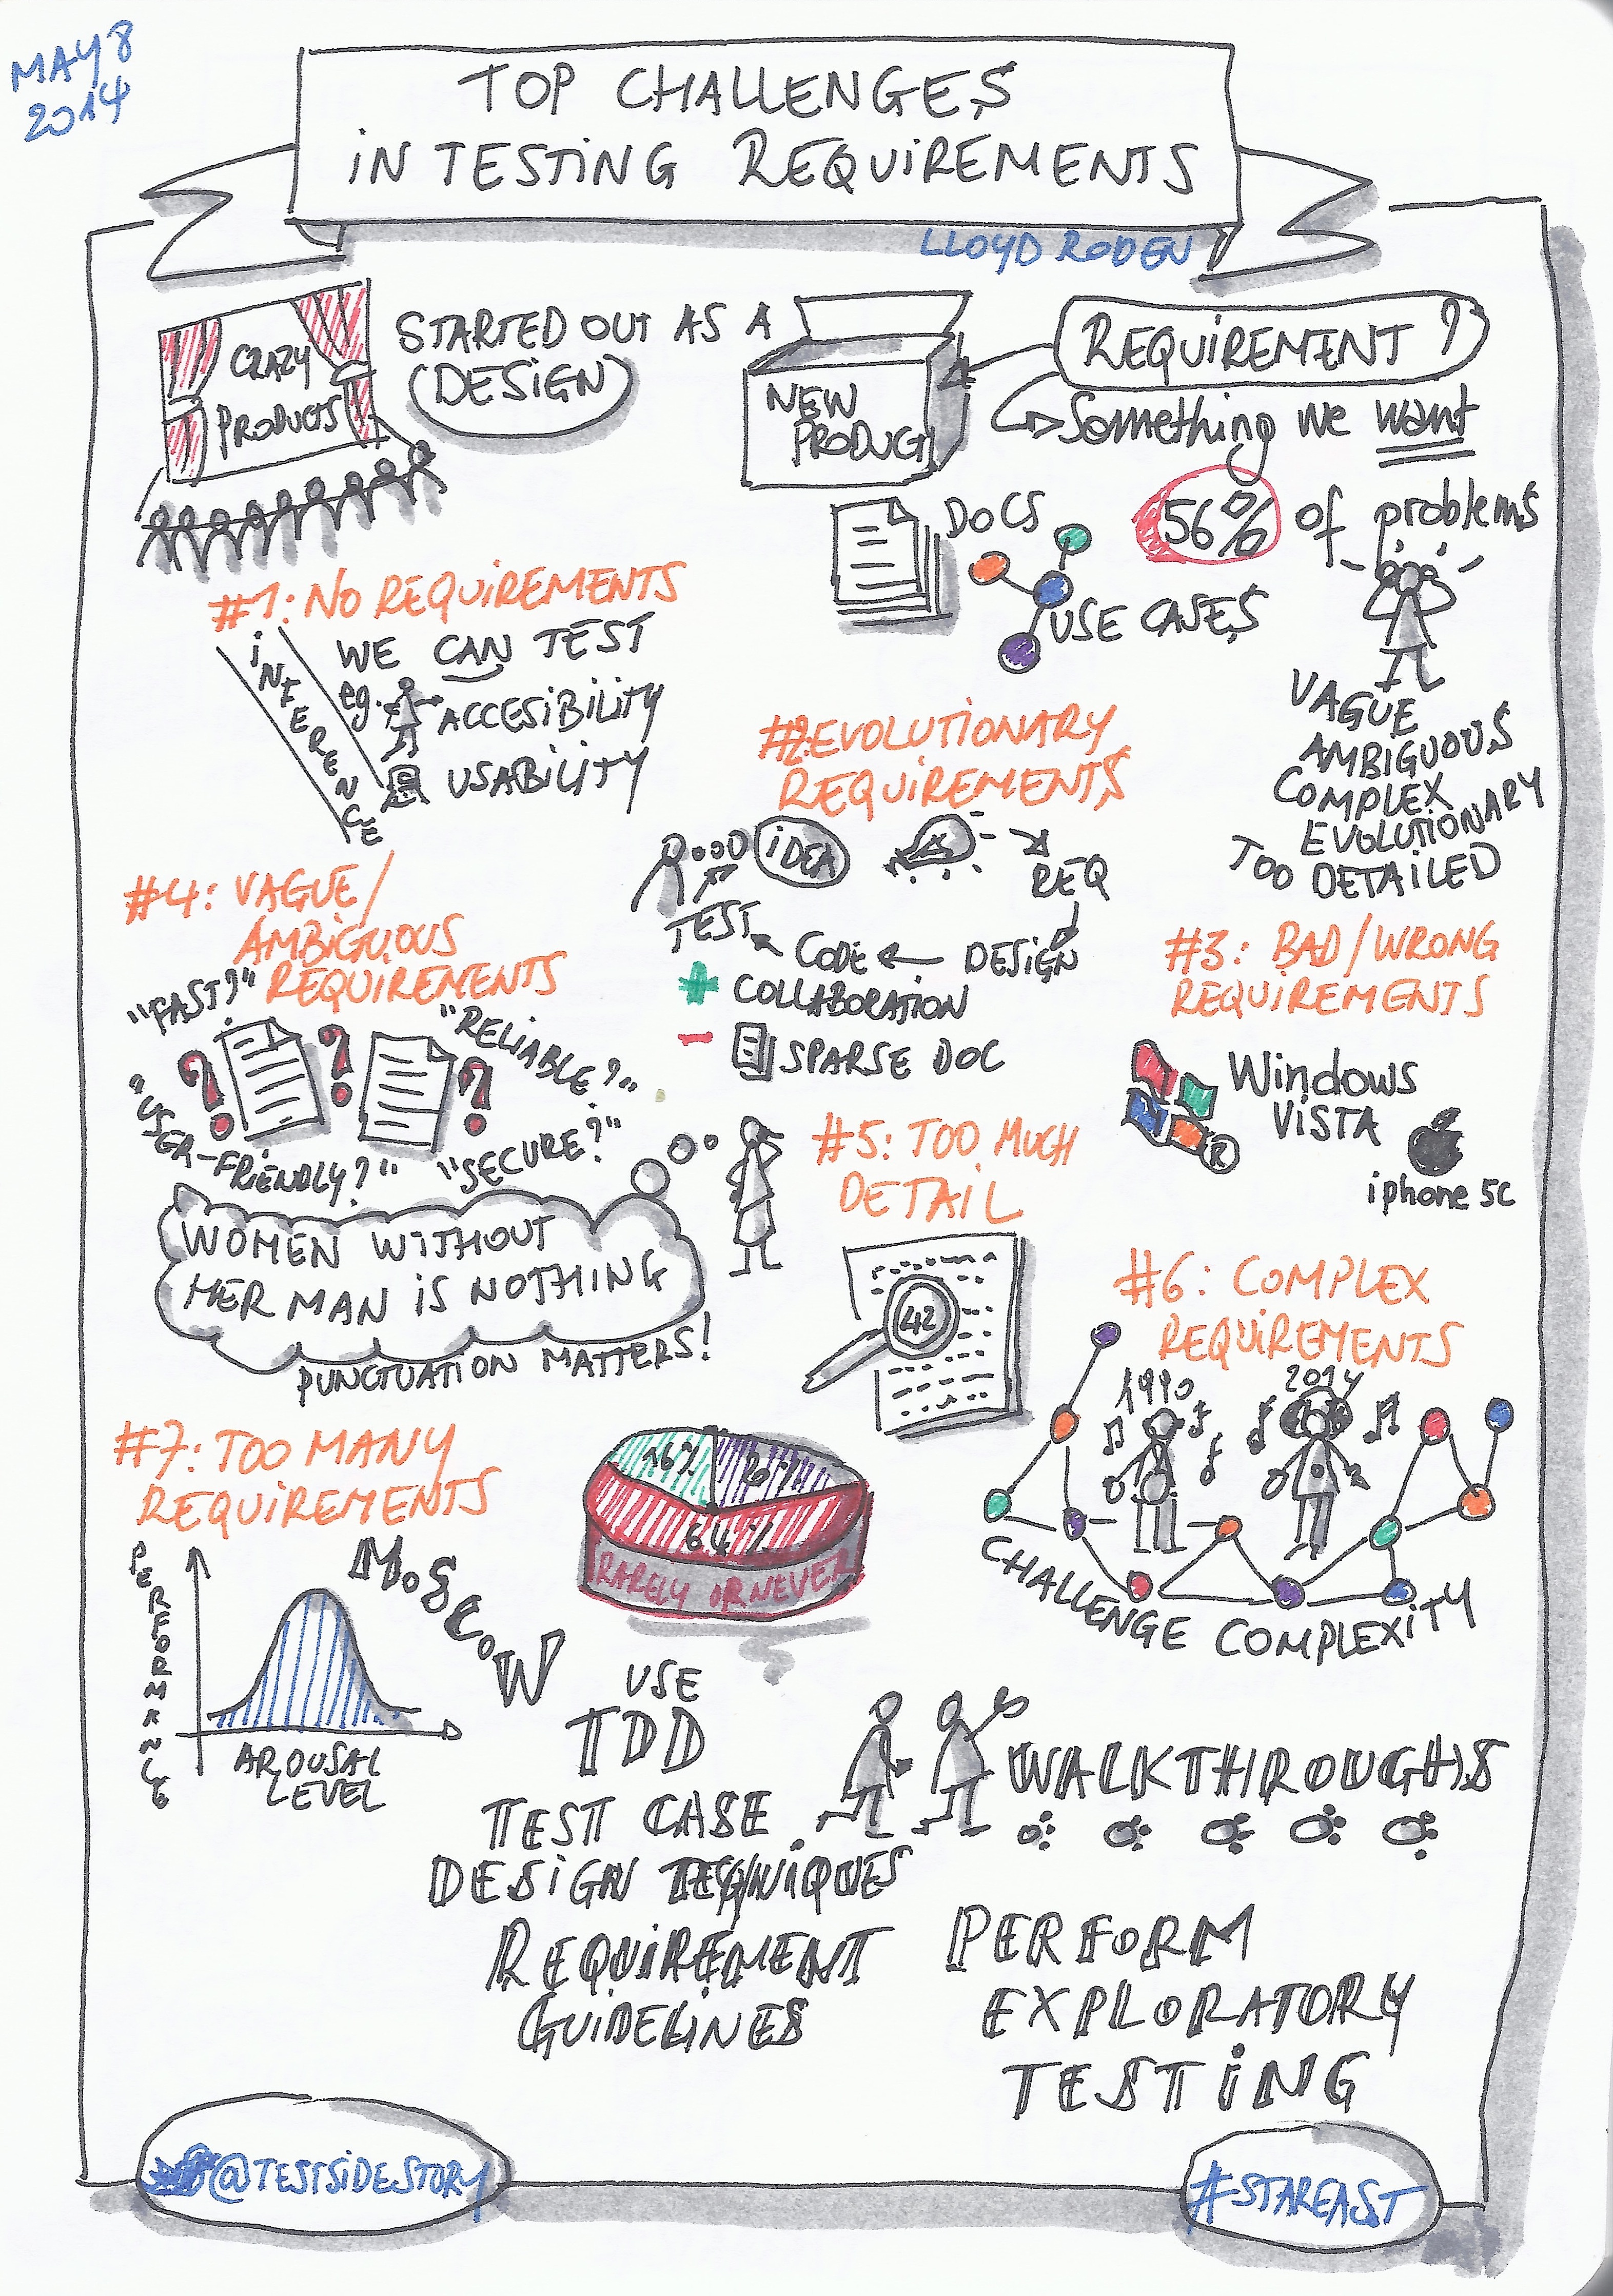 MAY 8
2014
TOP CHALLENGES
IN TESTING REQUIREMENTS
LLOYD RODEN
CRAZY
PRODUCTS
STARTED OUT AS A
DESIGN
NEW
PRODUCT
REQUIREMENT?
Something we want
DOCS
USE CASES
56% of problems
VAGUE
AMBIGUOUS
COMPLEX
EVOLUTIONARY
TOO DETAILED
#1: NO REQUIREMENTS
INTERENCE
WE CAN TEST
eg.
ACCESIBILITY
USABILITY
#2: EVOLUTIONARY
REQUIREMENTS
IDEA
REQ
DESIGN
CODE
TEST
+ COLLABORATION
- SPARSE DOC
#3: BAD/WRONG
REQUIREMENTS
Windows
VISTA
R
iphone 5c
#4: VAGUE/
AMBIGUOUS
REQUIREMENTS
"FAST?"
"RELIABLE?"
"USER-FRIENDLY?"
"SECURE?"
? ? ?
WOMEN WITHOUT
HER MAN IS NOTHING
PUNCTUATION MATTERS!
#5: TOO MUCH
DETAIL
42
#6: COMPLEX
REQUIREMENTS
1990
2014
CHALLENGE COMPLEXITY
#7: TOO MANY
REQUIREMENTS
PERFORMANCE
AROUSAL
LEVEL
MoSCoW
16%
20%
64%
RARELY OR NEVER
USE
TDD
TEST CASE
DESIGN TECHNIQUES
REQUIREMENT
GUIDELINES
WALKTHROUGHS
PERFORM
EXPLORATORY
TESTING
@TESTSIDESTORY
#STAREAST